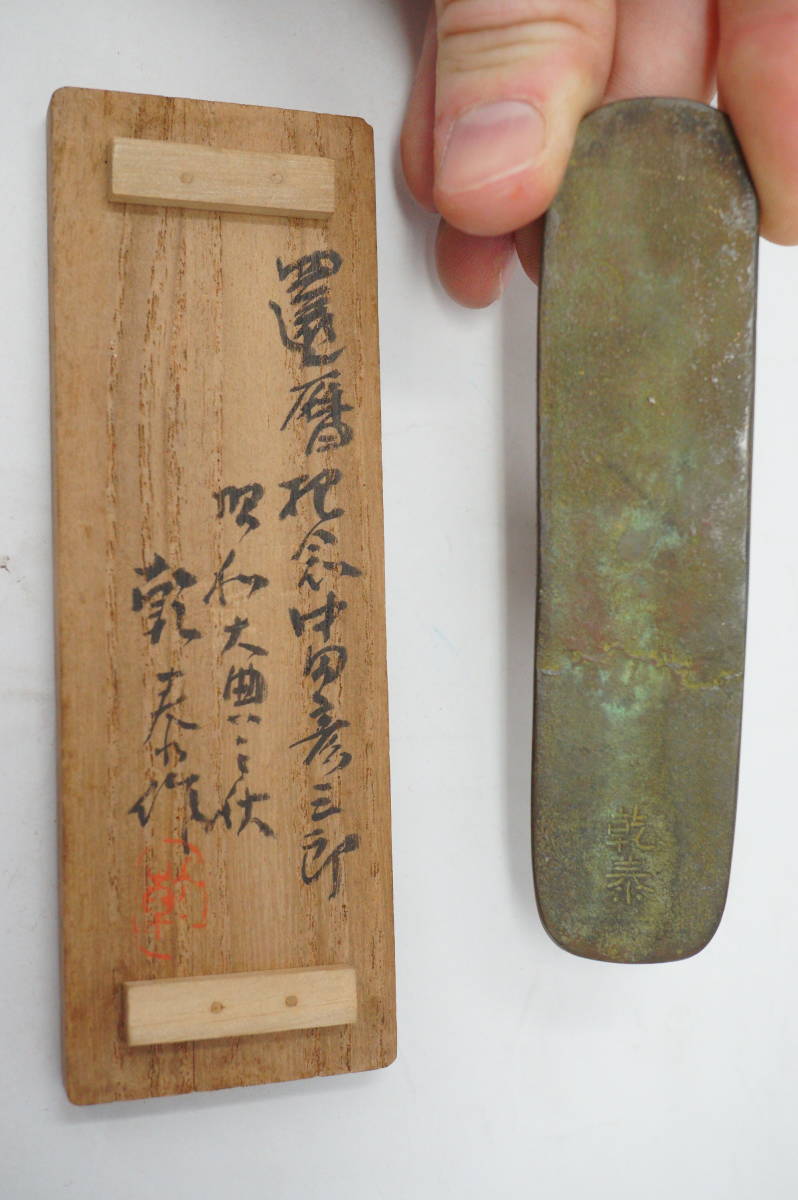 還暦記念中田彦三郎
昭和大典ハニ伏
乾泰作
乾泰